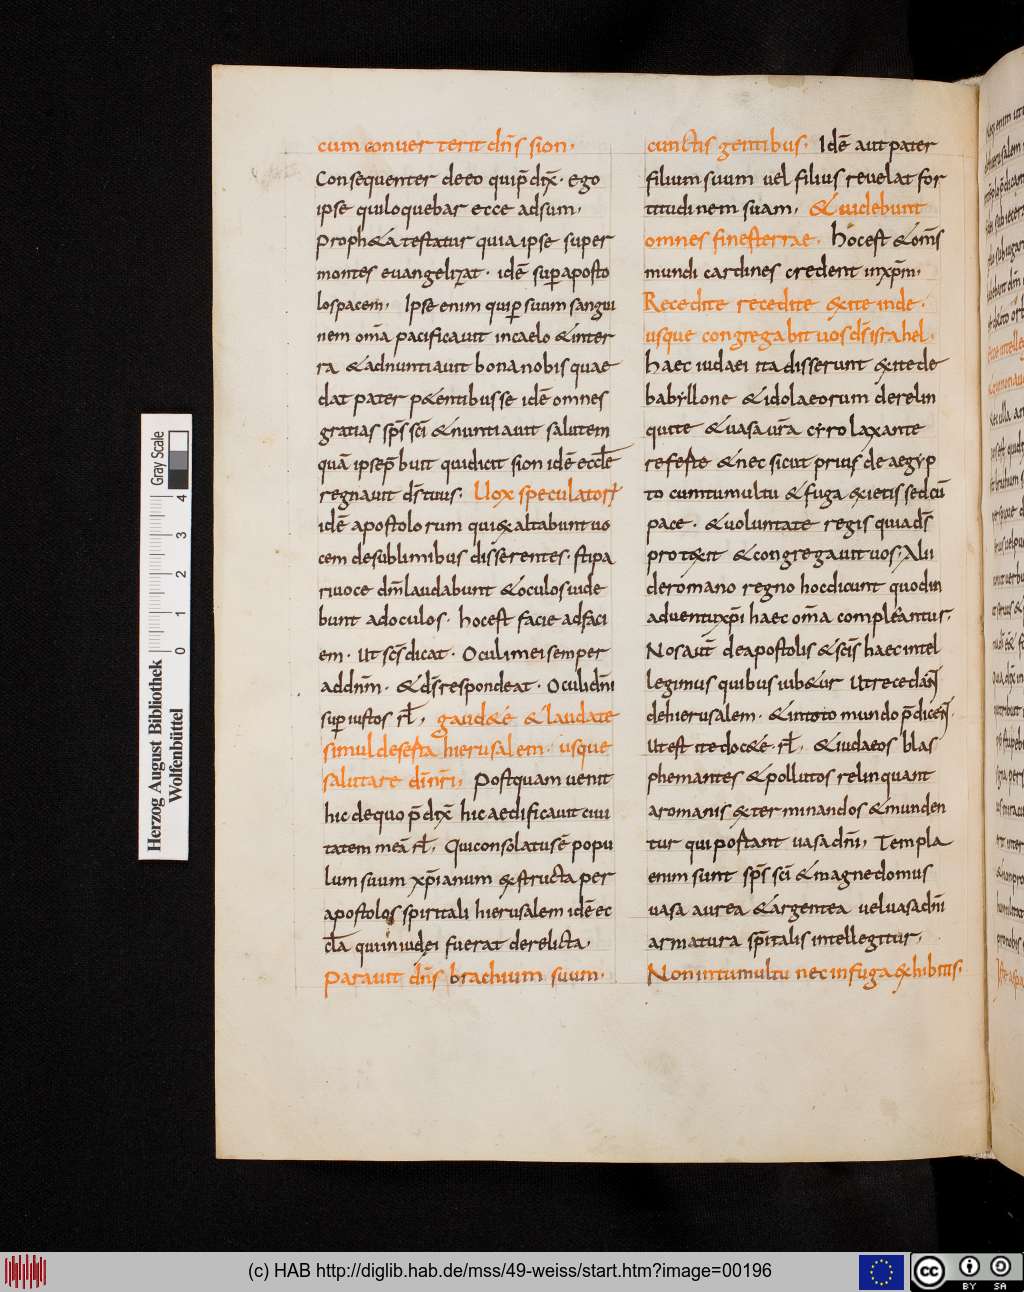 cum conuerterit dn̄s sion·
Consequenter de eo qui p̄dix̄· ego
ipse qui loquebar ecce adsum,
proph&a testatur quia ipse super
montes euangelizat· idē sup̱ aposto
los pacem, Ipse enim qui p̱ suum sangui
nem om̄a pacificauit in caelo & inter
ra & adnuntiauit bona nobis quae
dat pater p&entibus se idē omnes
gratias sp̄s sc̄i & nuntiauit salutem
quā ipse p̄buit qui dicit sion idē eccle̅
regnauit ds̄ tuus· Uox speculatorū
idē apostolorum qui exaltabunt uo
cem de sublimibus disserentes· & pa
ri uoce dn̄m laudabunt & oculos uide
bunt ad oculos· hoc est facie ad faci
em· Ut sc̄s dicat· Oculi mei semper
ad dn̄m· & ds̄ respondeat· Oculi dn̄i
sup̱ iustos rl̄, gaud&e & laudate
simul deserta hierusalem· usque
salutare dī nr̄i, Postquam uenit
hic de quo p̄dix̄ hic aedificauit ciui
tatem meā rl̄, Qui consolatus ē popu
lum suum xp̄ianum & structa per
apostolos spiritali hierusalem idē ec
cl̄a qui in iudęi fuerat derelicta,
Parauit dn̄s brachium suum·
cunctis gentibus· Idē aut pater
filium suum uel filius reuelat for
titudinem suam, & uidebunt
omnes fines terrae· hoc est & om̄s
mundi cardines credent in xp̄m,
Recedite recedite exite inde·
usque congregabit uos ds̄ israhel·
haec iudaei ita disserunt exite de
babyllone & idola eorum derelin
quite & uasa ur̄a cyro laxante
referte & nec sicut prius de aegyp
to cum tumultu & fuga exietis sed cū
pace· & uoluntate regis quia ds̄
protexit & congregauit uos· Alii
de romano regno hoc dicunt quod in
aduentu xp̄i haec om̄a compleantur,
Nos aut̄ de apostolis & sc̄is haec intel
legimus quibus iub&ur ut recedant
de hierusalem· & in toto mundo p̄dicent·
Ut est ite doc&e rl̄, & iudaeos blas
phemantes & pollutos relinquant
a romanis exterminandos & munden
tur qui portant uasa dn̄i, Templa
enim sunt sp̄s sc̄i & magne domus
uasa aurea & argentea uel uasa dn̄i
armatura sp̄italis intellegitur,
Non in tumultu nec in fuga exhibitis·
Herzog August Bibliothek
Wolfenbüttel
Gray Scale
0 1 2 3 4
(c) HAB http://diglib.hab.de/mss/49-weiss/start.htm?image=00196
cc BY SA